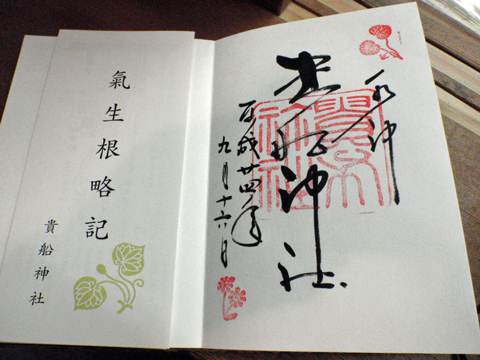 水神
貴船神社
平成廿四年
九月十六日
氣生根略記
貴船神社